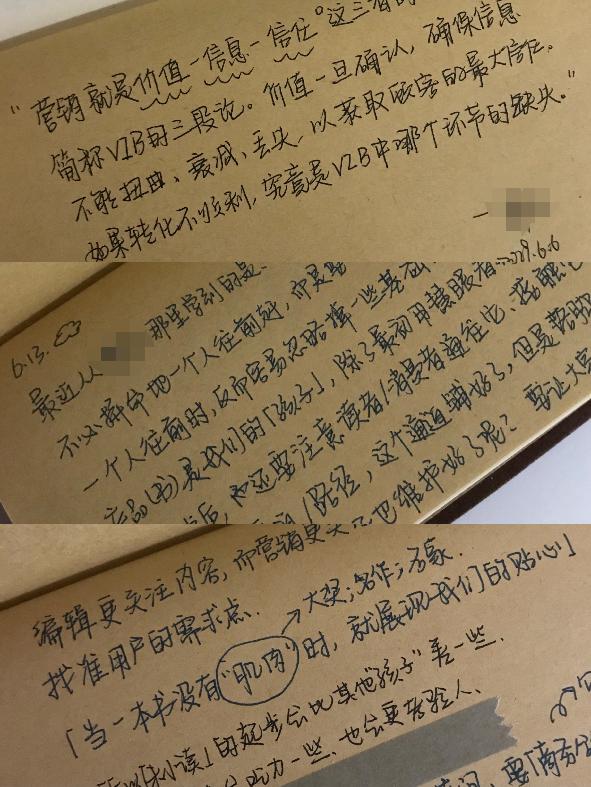 "营销就是价值-信息-信任。这三者的
简称VIB的三段论。价值一旦确认，确保信息
不能扭曲、衰减、丢失，以获取顾客的最大信任。
如果转化不顺利，究竟是VIB中哪个环节的缺失。"
一
6.13.
最近从 那里学到的是
不必拼命地一个人往前赶，而是
一个人往前时，反而容易忽略掉一些基础
产品(书)是我们的「孩子」，除了最初用慧眼
后，还要注意读者/消费者通往它、接触它
/路径，这个通道铺好了，但是
也维护好了呢？要让大家
编辑更关注内容，而营销更
找准用户的需求点.
大奖;名作;名家.
「当一本书没有"肌肉"时，就展现我们的贴心」
「未小读」的起步会比其他"孩子"差一些.
吃力一些.也会更考验人.